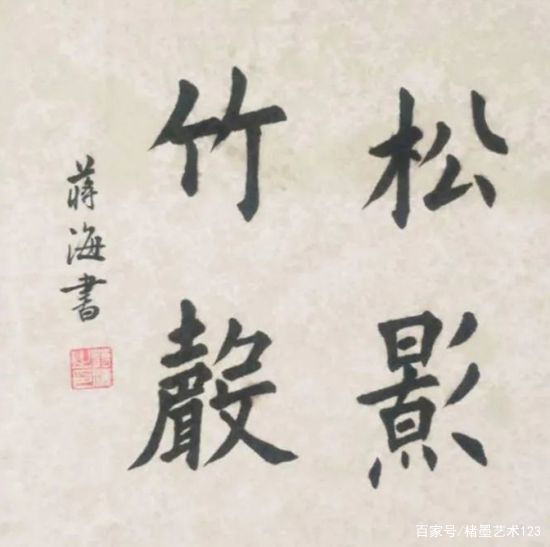 松影
竹聲
蒋海書
百家号/楮墨艺术123